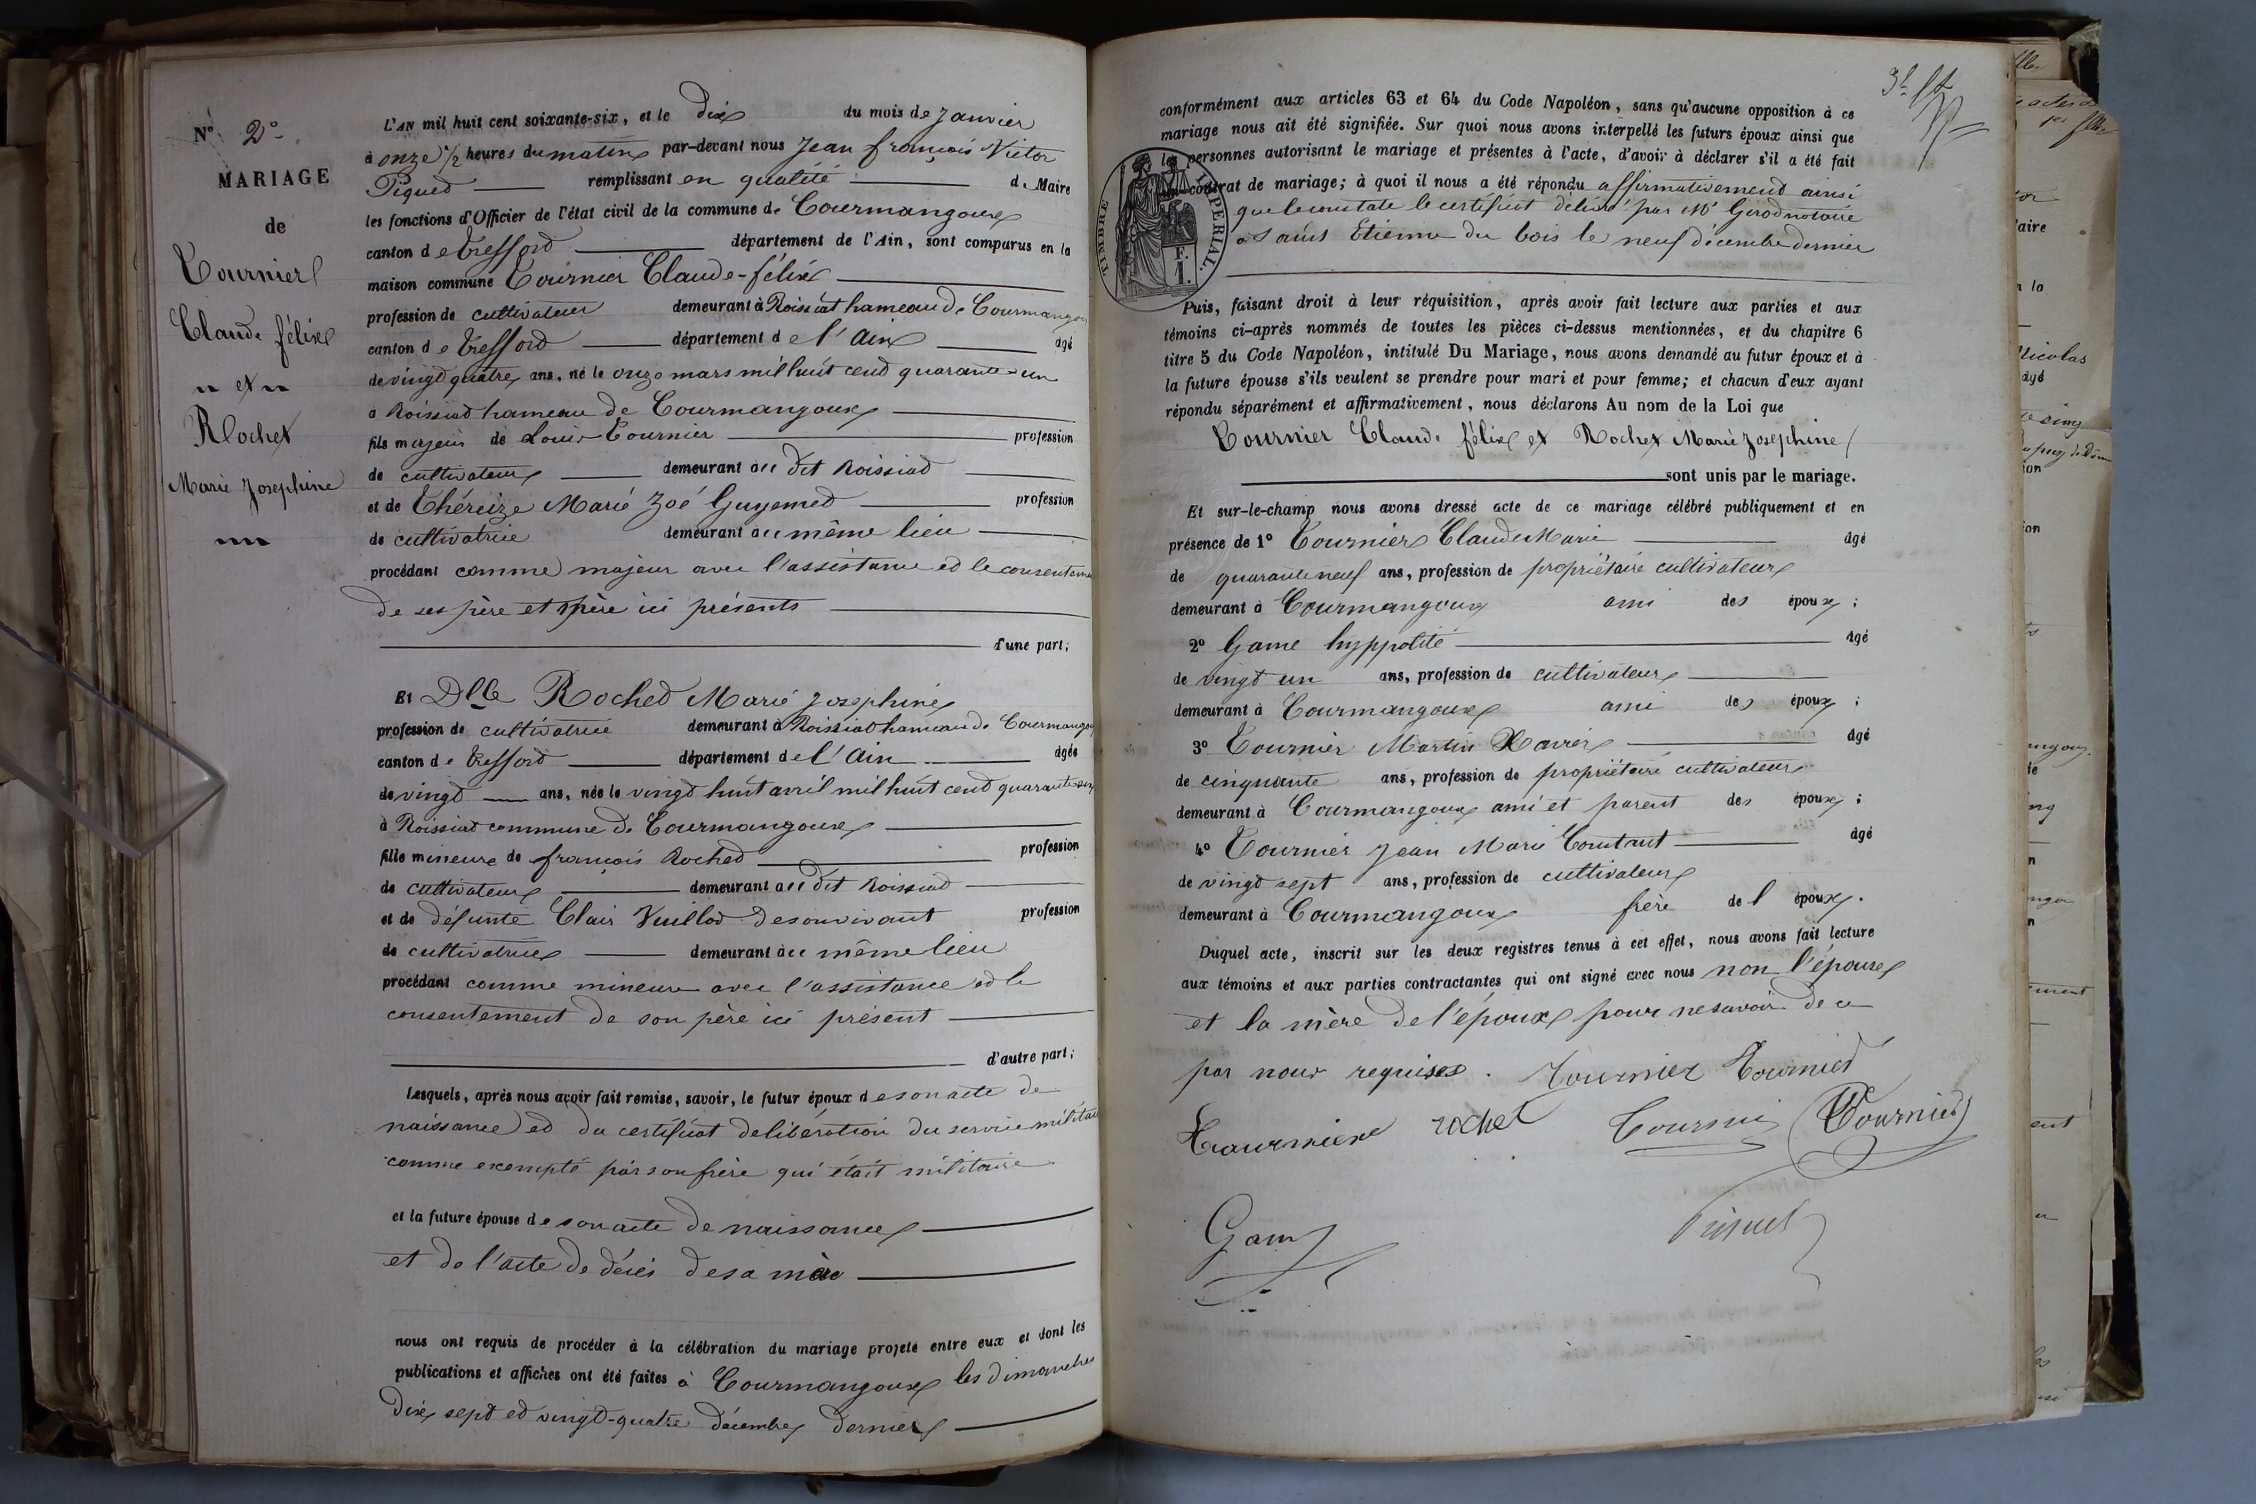 Nº 2º
MARIAGE
de
Tournier
Claude félix
et
Rochet
Marie Josephine
L'AN mil huit cent soixante-six, et le dix du mois de Janvier
à onze 1/2 heures du matin par-devant nous Jean françois Victor
Piquet remplissant en qualité de Maire
les fonctions d'Officier de l'état civil de la commune de Courmangoux
canton de Treffort département de l'Ain, sont comparus en la
maison commune Tournier Claude-félix
profession de cultivateur demeurant à Roissiat hameau de Courmangoux
canton de Treffort département de l'Ain âgé
de vingt quatre ans, né le onze mars mil huit cent quarante-un
à Roissiat hameau de Courmangoux
fils majeur de Louis Tournier profession
de cultivateur demeurant au dit Roissiat
et de Théreize Marie Zoé Guyennet profession
de cultivatrice demeurant au même lieu
procédant comme majeur avec l'assistance et le consenteme
de ses père et mère ici présents
d'une part;
Et Dlle Rochet Marie Josephine
profession de cultivatrice demeurant à Roissiat hameau de Courmangoux
canton de Treffort département de l'Ain âgée
de vingt ans, née le vingt huit avril mil huit cent quarante cinq
à Roissiat commune de Courmangoux
fille mineure de françois Rochet profession
de cultivateur demeurant au dit Roissiat
et de défunte Clair Vuillot de son vivant profession
de cultivatrice demeurant au même lieu
procédant comme mineure avec l'assistance et le
consentement de son père ici présent
d'autre part;
Lesquels, après nous avoir fait remise, savoir, le futur époux de son acte de
naissance et du certificat de libération du service militaire
comme exempté par son frère qui était militaire
et la future épouse de son acte de naissance
et de l'acte de décès de sa mère
nous ont requis de procéder à la célébration du mariage projeté entre eux et dont les
publications et affiches ont été faites à Courmangoux les dimanches
dix sept et vingt-quatre décembre dernier
conformément aux articles 63 et 64 du Code Napoléon, sans qu'aucune opposition à ce
mariage nous ait été signifiée. Sur quoi nous avons interpellé les futurs époux ainsi que
les personnes autorisant le mariage et présentes à l'acte, d'avoir à déclarer s'il a été fait
un contrat de mariage; à quoi il nous a été répondu affirmativement ainsi
que le constate le certificat délivré par Me Girod notaire
à Saint Etienne du bois le neuf décembre dernier
TIMBRE IMPERIAL.
F.
1.
Puis, faisant droit à leur réquisition, après avoir fait lecture aux parties et aux
témoins ci-après nommés de toutes les pièces ci-dessus mentionnées, et du chapitre 6
titre 5 du Code Napoléon, intitulé Du Mariage, nous avons demandé au futur époux et à
la future épouse s'ils veulent se prendre pour mari et pour femme; et chacun d'eux ayant
répondu séparément et affirmativement, nous déclarons Au nom de la Loi que
Tournier Claude félix et Rochet Marie Josephine
sont unis par le mariage.
Et sur-le-champ nous avons dressé acte de ce mariage célébré publiquement et en
présence de 1º Tournier Claude Marie âgé
de quarante neuf ans, profession de propriétaire cultivateur
demeurant à Courmangoux ami des époux;
2º Game hyppolite âgé
de vingt un ans, profession de cultivateur
demeurant à Courmangoux ami des époux;
3º Tournier Martin Xavier âgé
de cinquante ans, profession de propriétaire cultivateur
demeurant à Courmangoux ami et parent des époux;
4º Tournier Jean Marie Constant âgé
de vingt sept ans, profession de cultivateur
demeurant à Courmangoux frère de l'époux.
Duquel acte, inscrit sur les deux registres tenus à cet effet, nous avons fait lecture
aux témoins et aux parties contractantes qui ont signé avec nous non l'épouse
et la mère de l'époux pour ne savoir de ce
par nous requises. Tournier Tournier
Tournier rochet Tournier Tournier
Game Piquet